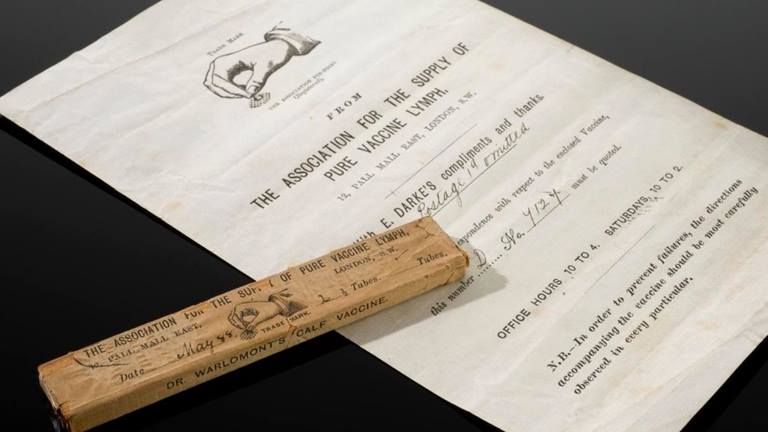 TRADE MARK
THE ASSOCIATION PUR-POINT
(Registered).
FROM
THE ASSOCIATION FOR THE SUPPLY OF
PURE VACCINE LYMPH.
12, PALL MALL EAST, LONDON, S.W.
E. DARKE'S compliments and thanks.
Postage 1d omitted
respondence with respect to the enclosed Vaccine,
this number No. 7124 must be quoted.
OFFICE HOURS 10 TO 4. SATURDAYS, 10 TO 2.
N.B.—In order to prevent failures, the directions
accompanying the vaccine should be most carefully
observed in every particular.
THE ASSOCIATION FOR THE SUP OF PURE VACCINE LYMPH,
PALL MALL EAST, LONDON, S.W.
TRADE MARK
Date May 88 Tubes. Tubes.
DR. WARLOMONT'S CALF VACCINE.